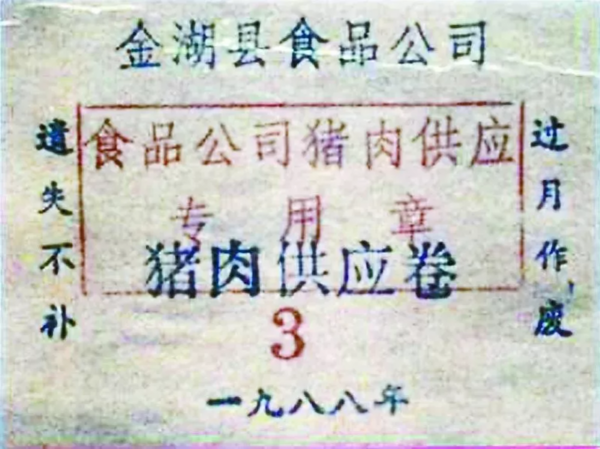 金湖县食品公司
遗失不补
食品公司猪肉供应
专用章
猪肉供应卷
3
一九八八年
过月作废